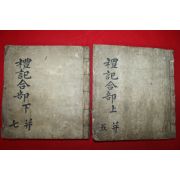 禮記合部上
五
禮記合部下
七